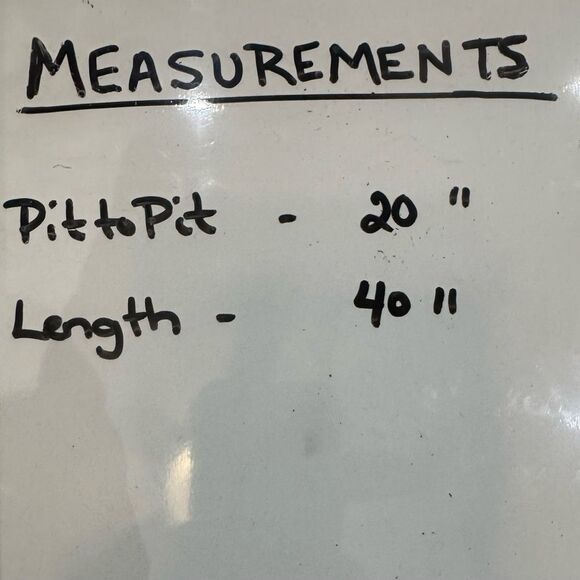 MEASUREMENTS
Pit to Pit - 20 "
Length - 40 "